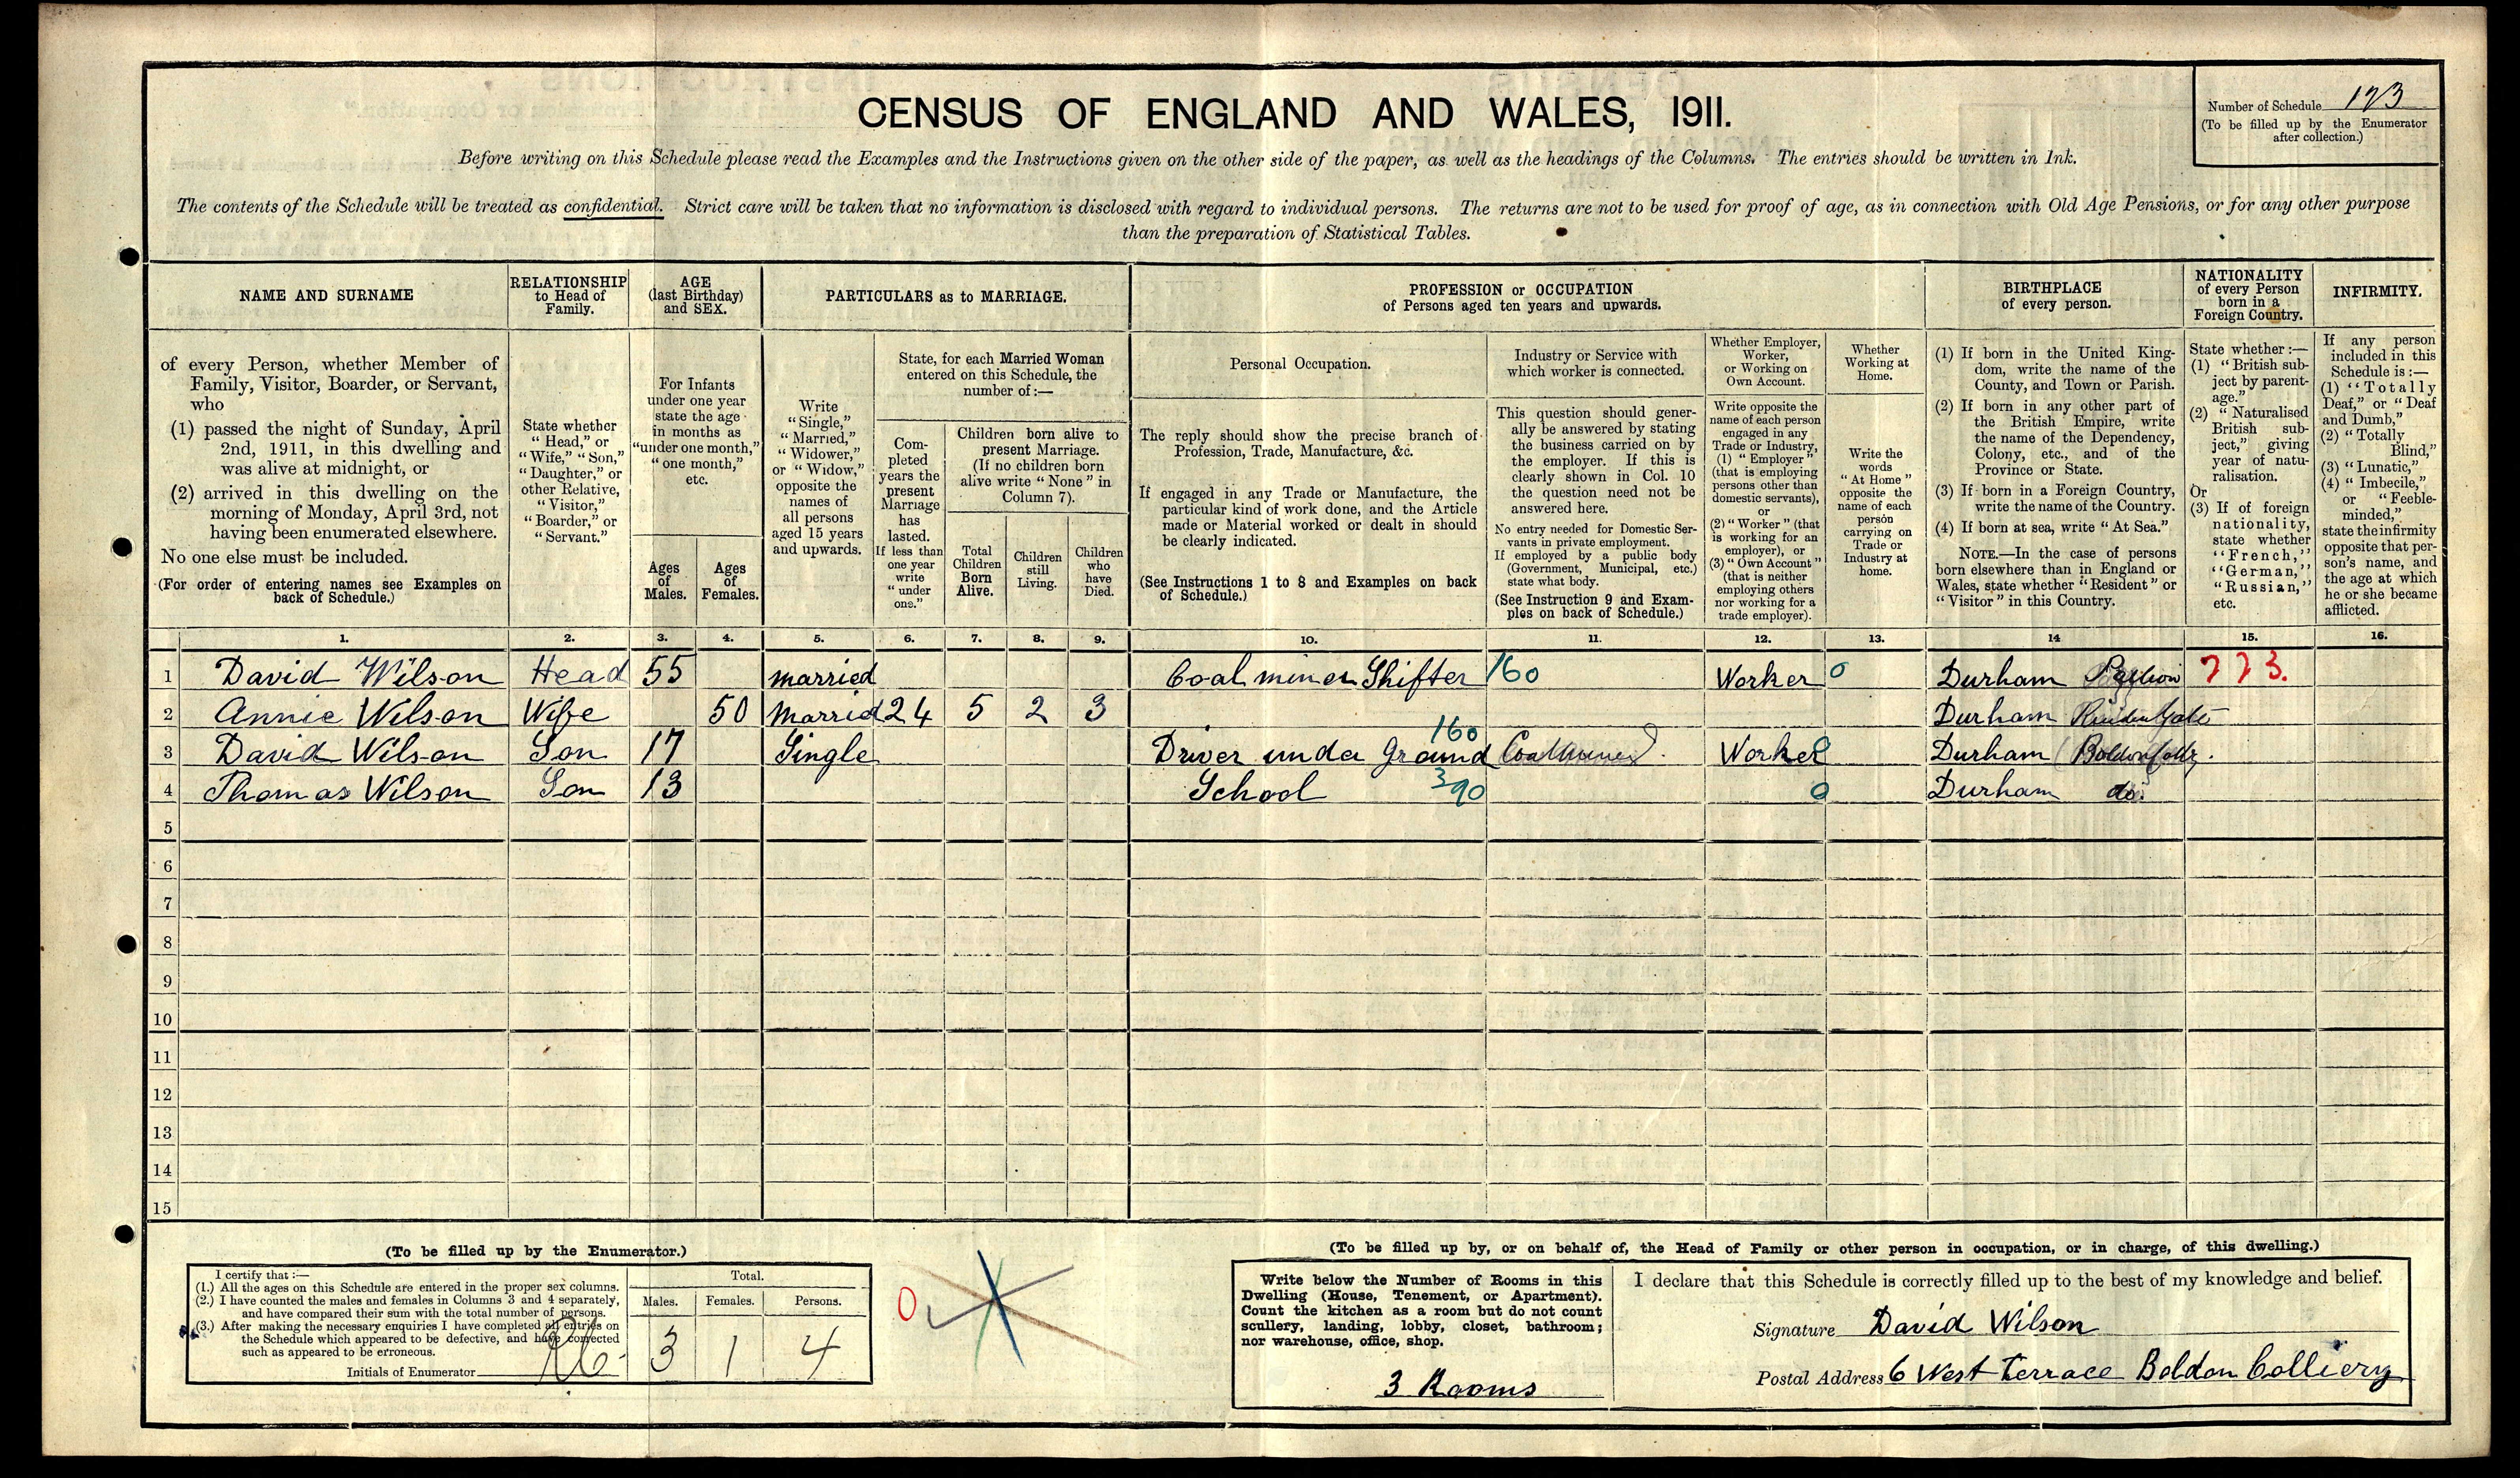 CENSUS OF ENGLAND AND WALES, 1911.
Number of Schedule 123
(To be filled up by the Enumerator
after collection.)
Before writing on this Schedule please read the Examples and the Instructions given on the other side of the paper, as well as the headings of the Columns. The entries should be written in Ink.
The contents of the Schedule will be treated as confidential. Strict care will be taken that no information is disclosed with regard to individual persons. The returns are not to be used for proof of age, as in connection with Old Age Pensions, or for any other purpose
than the preparation of Statistical Tables.
NAME AND SURNAME
of every Person, whether Member of
Family, Visitor, Boarder, or Servant,
who
(1) passed the night of Sunday, April
2nd, 1911, in this dwelling and
was alive at midnight, or
(2) arrived in this dwelling on the
morning of Monday, April 3rd, not
having been enumerated elsewhere.
No one else must be included.
(For order of entering names see Examples on
back of Schedule.)
RELATIONSHIP
to Head of
Family.
State whether
"Head," or
"Wife," "Son,"
"Daughter," or
other Relative,
"Visitor,"
"Boarder," or
"Servant."
AGE
(last Birthday)
and SEX.
For Infants
under one year
state the age
in months as
"under one month,"
"one month,"
etc.
Ages
of
Males.
Ages
of
Females.
PARTICULARS as to MARRIAGE.
Write
"Single,"
"Married,"
"Widower,"
or "Widow,"
opposite the
names of
all persons
aged 15 years
and upwards.
State, for each Married Woman
entered on this Schedule, the
number of:—
Com-
pleted
years the
present
Marriage
has
lasted.
If less than
one year
write
"under
one."
Children born alive to
present Marriage.
(If no children born
alive write "None" in
Column 7).
Total
Children
Born
Alive.
Children
still
Living.
Children
who
have
Died.
PROFESSION or OCCUPATION
of Persons aged ten years and upwards.
Personal Occupation.
The reply should show the precise branch of
Profession, Trade, Manufacture, &c.
If engaged in any Trade or Manufacture, the
particular kind of work done, and the Article
made or Material worked or dealt in should
be clearly indicated.
(See Instructions 1 to 8 and Examples on back
of Schedule.)
Industry or Service with
which worker is connected.
This question should gener-
ally be answered by stating
the business carried on by
the employer. If this is
clearly shown in Col. 10
the question need not be
answered here.
No entry needed for Domestic Ser-
vants in private employment.
If employed by a public body
(Government, Municipal, etc.)
state what body.
(See Instruction 9 and Exam-
ples on back of Schedule.)
Whether Employer,
Worker,
or Working on
Own Account.
Write opposite the
name of each person
engaged in any
Trade or Industry,
(1) "Employer"
(that is employing
persons other than
domestic servants),
or
(2) "Worker" (that
is working for an
employer), or
(3) "Own Account"
(that is neither
employing others
nor working for a
trade employer).
Whether
Working at
Home.
Write the
words
"At Home"
opposite the
name of each
person
carrying on
Trade or
Industry at
home.
BIRTHPLACE
of every person.
(1) If born in the United King-
dom, write the name of the
County, and Town or Parish.
(2) If born in any other part of
the British Empire, write
the name of the Dependency,
Colony, etc., and of the
Province or State.
(3) If born in a Foreign Country,
write the name of the Country.
(4) If born at sea, write "At Sea."
NOTE.—In the case of persons
born elsewhere than in England or
Wales, state whether "Resident" or
"Visitor" in this Country.
NATIONALITY
of every Person
born in a
Foreign Country.
State whether:—
(1) "British sub-
ject by parent-
age."
(2) "Naturalised
British sub-
ject," giving
year of natu-
ralisation.
Or
(3) If of foreign
nationality,
state whether
"French,"
"German,"
"Russian,"
etc.
INFIRMITY.
If any person
included in this
Schedule is:—
(1) "Totally
Deaf," or "Deaf
and Dumb,"
(2) "Totally
Blind,"
(3) "Lunatic,"
(4) "Imbecile,"
or "Feeble-
minded,"
state the infirmity
opposite that per-
son's name, and
the age at which
he or she became
afflicted.
1. 2. 3. 4. 5. 6. 7. 8. 9. 10. 11. 12. 13. 14 15. 16.
1 David Wilson Head 55 married Coal miner Shifter 160 Worker 0 Durham 773.
2 Annie Wilson Wife 50 Married 24 5 2 3 Durham
3 David Wilson Son 17 Single Driver under Ground 160 Worker 0 Durham Boldon Colly.
4 Thomas Wilson Son 13 School 390 0 Durham do.
5
6
7
8
9
10
11
12
13
14
15
(To be filled up by the Enumerator.)
I certify that:—
(1.) All the ages on this Schedule are entered in the proper sex columns.
(2.) I have counted the males and females in Columns 3 and 4 separately,
and have compared their sum with the total number of persons.
(3.) After making the necessary enquiries I have completed all entries on
the Schedule which appeared to be defective, and have corrected
such as appeared to be erroneous.
Initials of Enumerator
Total.
Males. Females. Persons.
3 1 4
0
(To be filled up by, or on behalf of, the Head of Family or other person in occupation, or in charge, of this dwelling.)
Write below the Number of Rooms in this
Dwelling (House, Tenement, or Apartment).
Count the kitchen as a room but do not count
scullery, landing, lobby, closet, bathroom;
nor warehouse, office, shop.
3 Rooms
I declare that this Schedule is correctly filled up to the best of my knowledge and belief.
Signature David Wilson
Postal Address 6 West Terrace Boldon Colliery